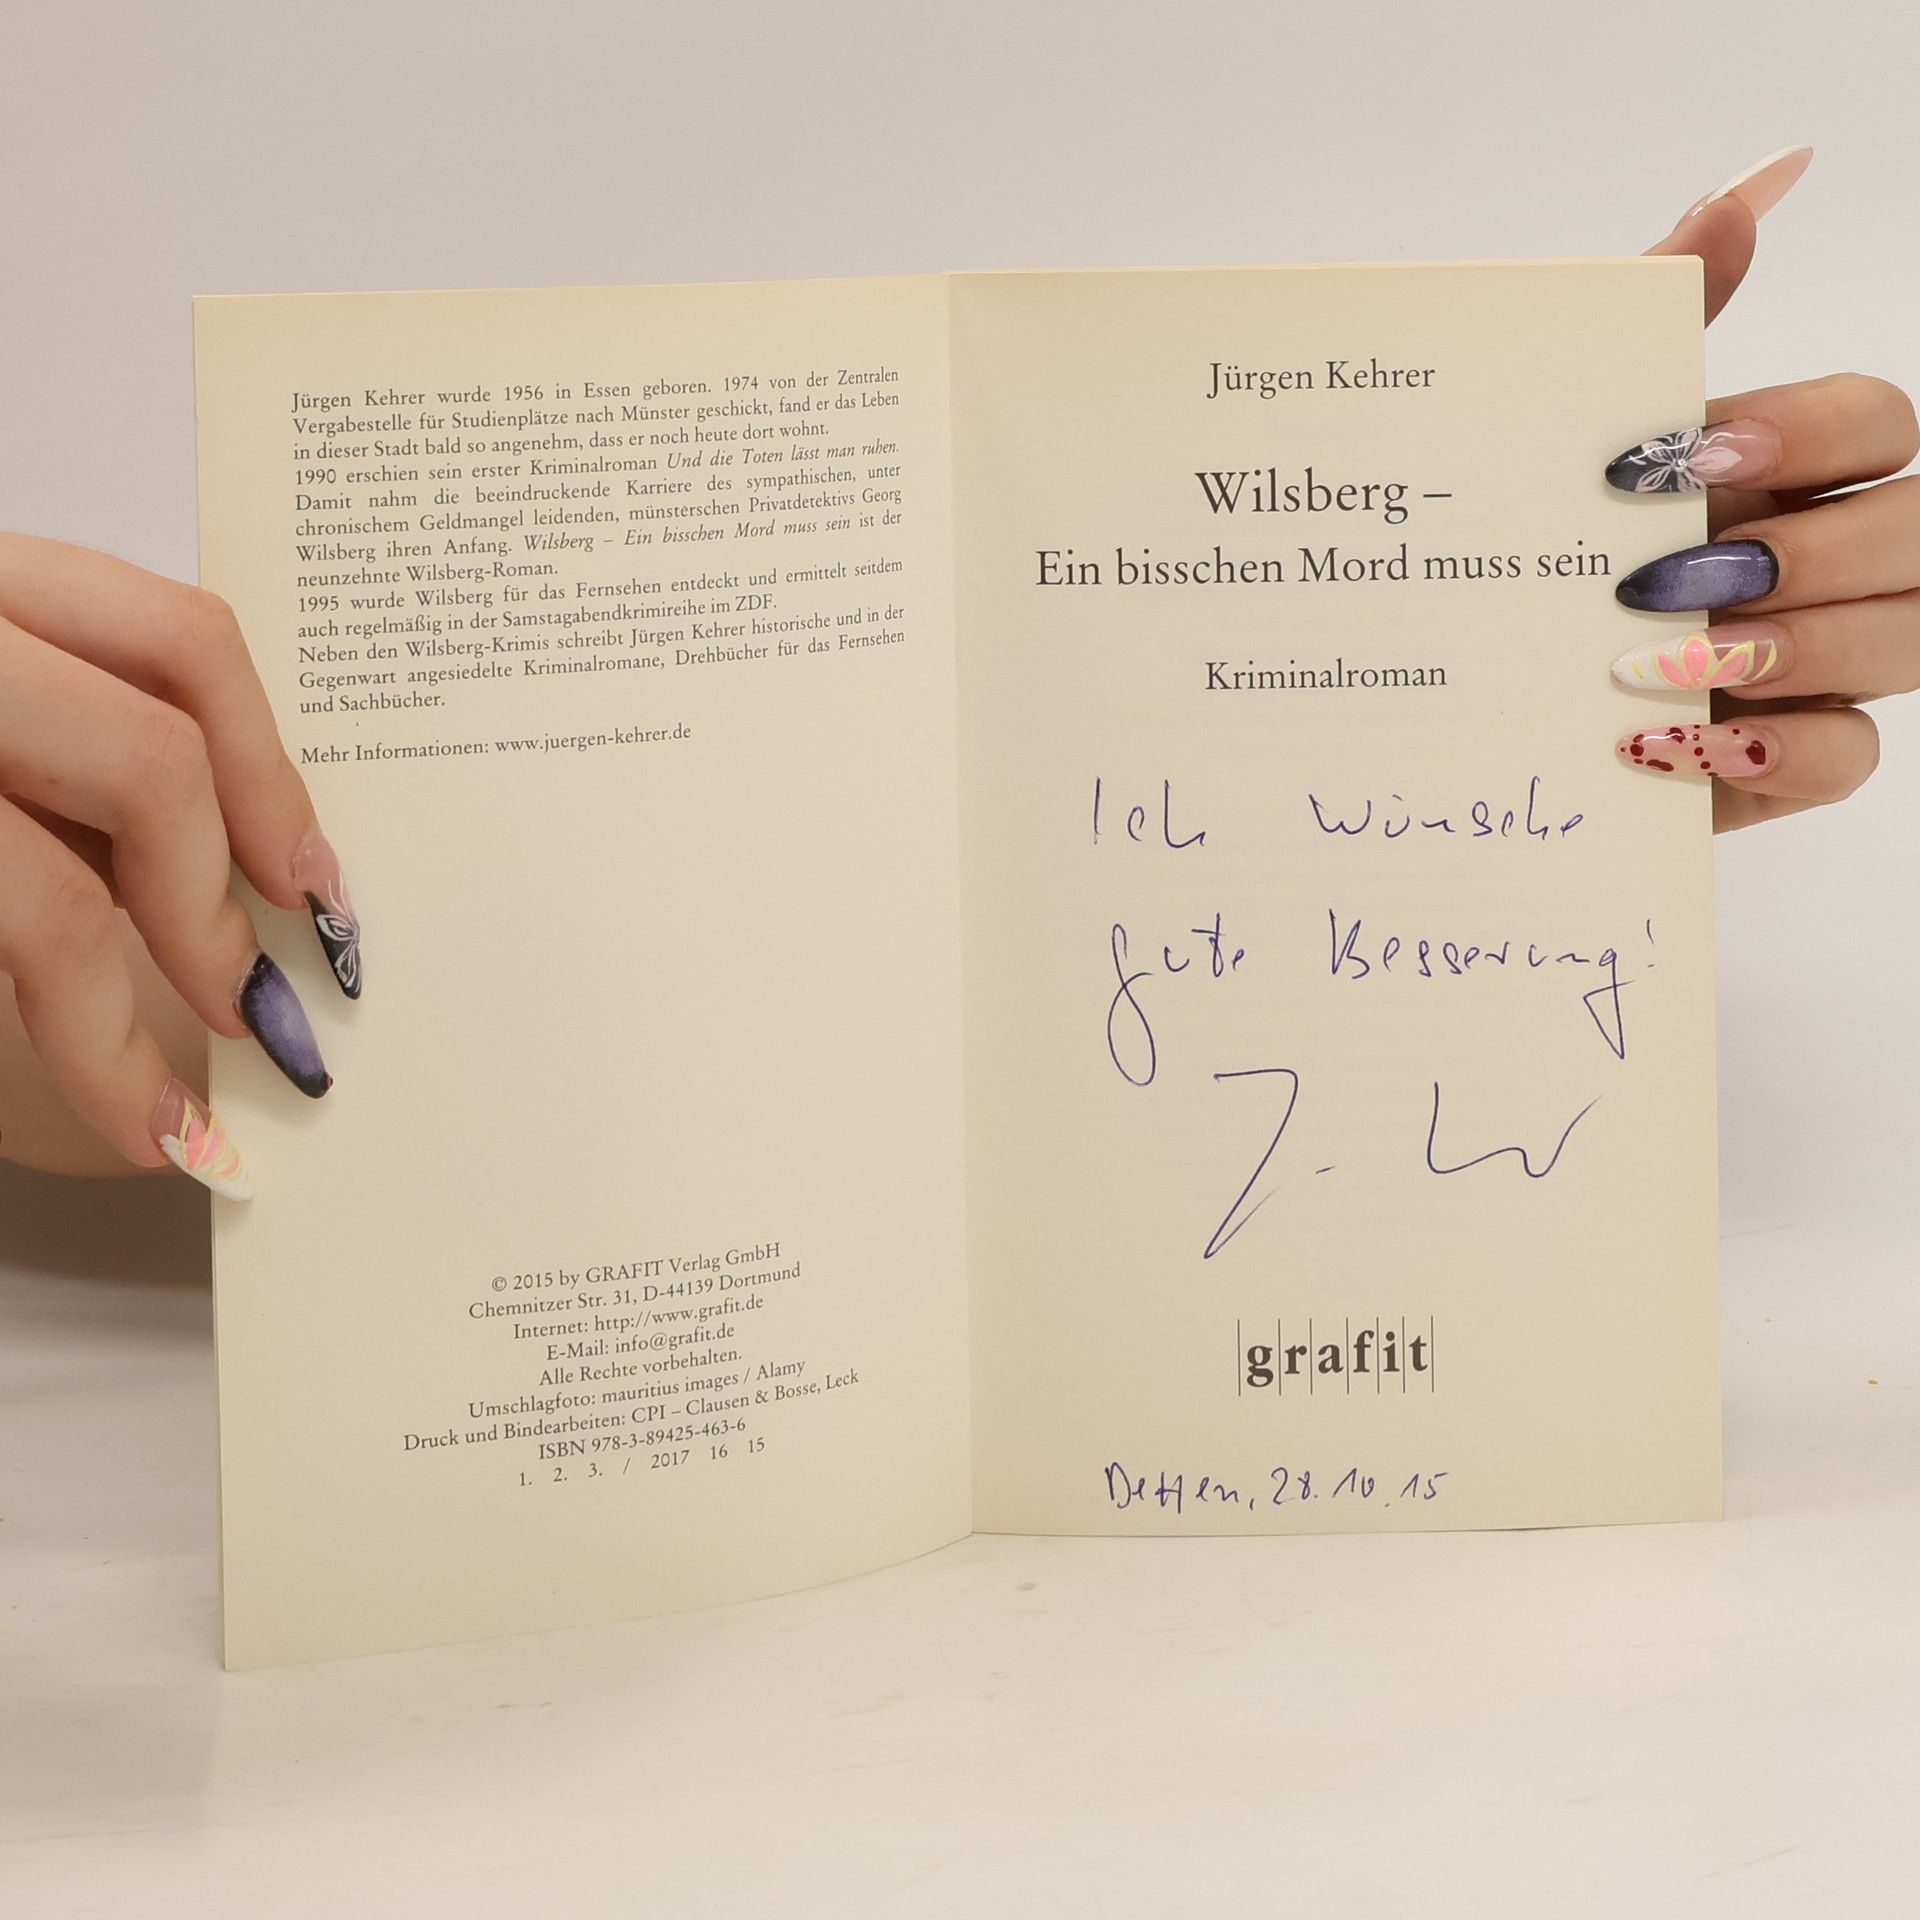 Jürgen Kehrer wurde 1956 in Essen geboren. 1974 von der Zentralen
Vergabestelle für Studienplätze nach Münster geschickt, fand er das Leben
in dieser Stadt bald so angenehm, dass er noch heute dort wohnt.
1990 erschien sein erster Kriminalroman Und die Toten lässt man ruhen.
Damit nahm die beeindruckende Karriere des sympathischen, unter
chronischem Geldmangel leidenden, münsterschen Privatdetektivs Georg
Wilsberg ihren Anfang. Wilsberg – Ein bisschen Mord muss sein ist der
neunzehnte Wilsberg-Roman.
1995 wurde Wilsberg für das Fernsehen entdeckt und ermittelt seitdem
auch regelmäßig in der Samstagabendkrimireihe im ZDF.
Neben den Wilsberg-Krimis schreibt Jürgen Kehrer historische und in der
Gegenwart angesiedelte Kriminalromane, Drehbücher für das Fernsehen
und Sachbücher.
Mehr Informationen: www.juergen-kehrer.de
© 2015 by GRAFIT Verlag GmbH
Chemnitzer Str. 31, D-44139 Dortmund
Internet: http://www.grafit.de
E-Mail: info@grafit.de
Alle Rechte vorbehalten.
Umschlagfoto: mauritius images / Alamy
Druck und Bindearbeiten: CPI – Clausen & Bosse, Leck
ISBN 978-3-89425-463-6
1. 2. 3. / 2017 16 15
Jürgen Kehrer
Wilsberg –
Ein bisschen Mord muss sein
Kriminalroman
Ich wünsche
gute Besserung!
grafit
Detten, 28.10.15